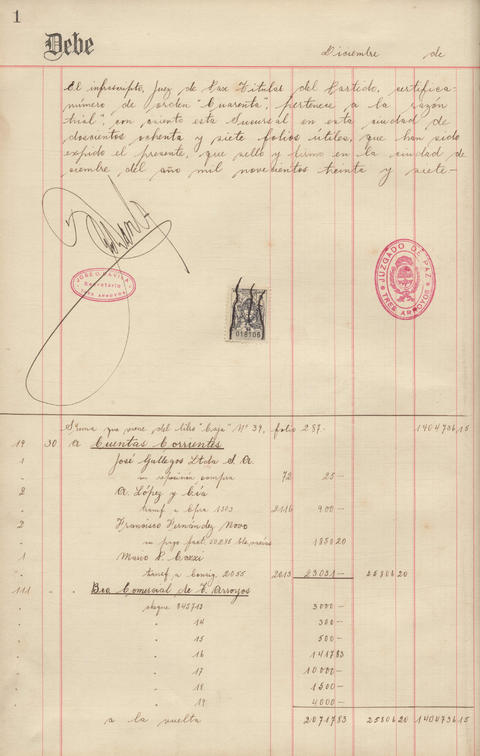 1
Debe
Diciembre de
El infrascripto, Juez de Paz Titular del Partido, certifica:
número de orden "Cuarenta", pertenece a la razón
trial", con asiento esta Sucursal en esta ciudad de
doscientos ochenta y siete folios útiles, que han sido
expido el presente, que sello y firmo en la ciudad de
ciembre del año mil novecientos treinta y siete—
JUZGADO DE PAZ
TRES ARROYOS
Secretario
TRES ARROYOS
018106
Suma que viene del libro "Caja" Nº 39, folio 287.- 1404736,15
19 30 a Cuentas Corrientes
1 José Gallegos Ltda S. A.
su reposición compra 72 25—
2 A. López y Cía
transf. a Cpra 1303 2116 900—
2 Francisco Fernández Novo
su pago fact. 1850 20
1 Marco
transf. a Consig. 2055 2013 23031— 25806 20
111 " " Bco Comercial de T. Arroyos
cheque 845713 3000—
" 14 300—
" 15 500—
" 16 1417 83
" 17 10000—
" 18 1500—
" 19 4000—
a la vuelta 20717 83 25806 20 1404736 15